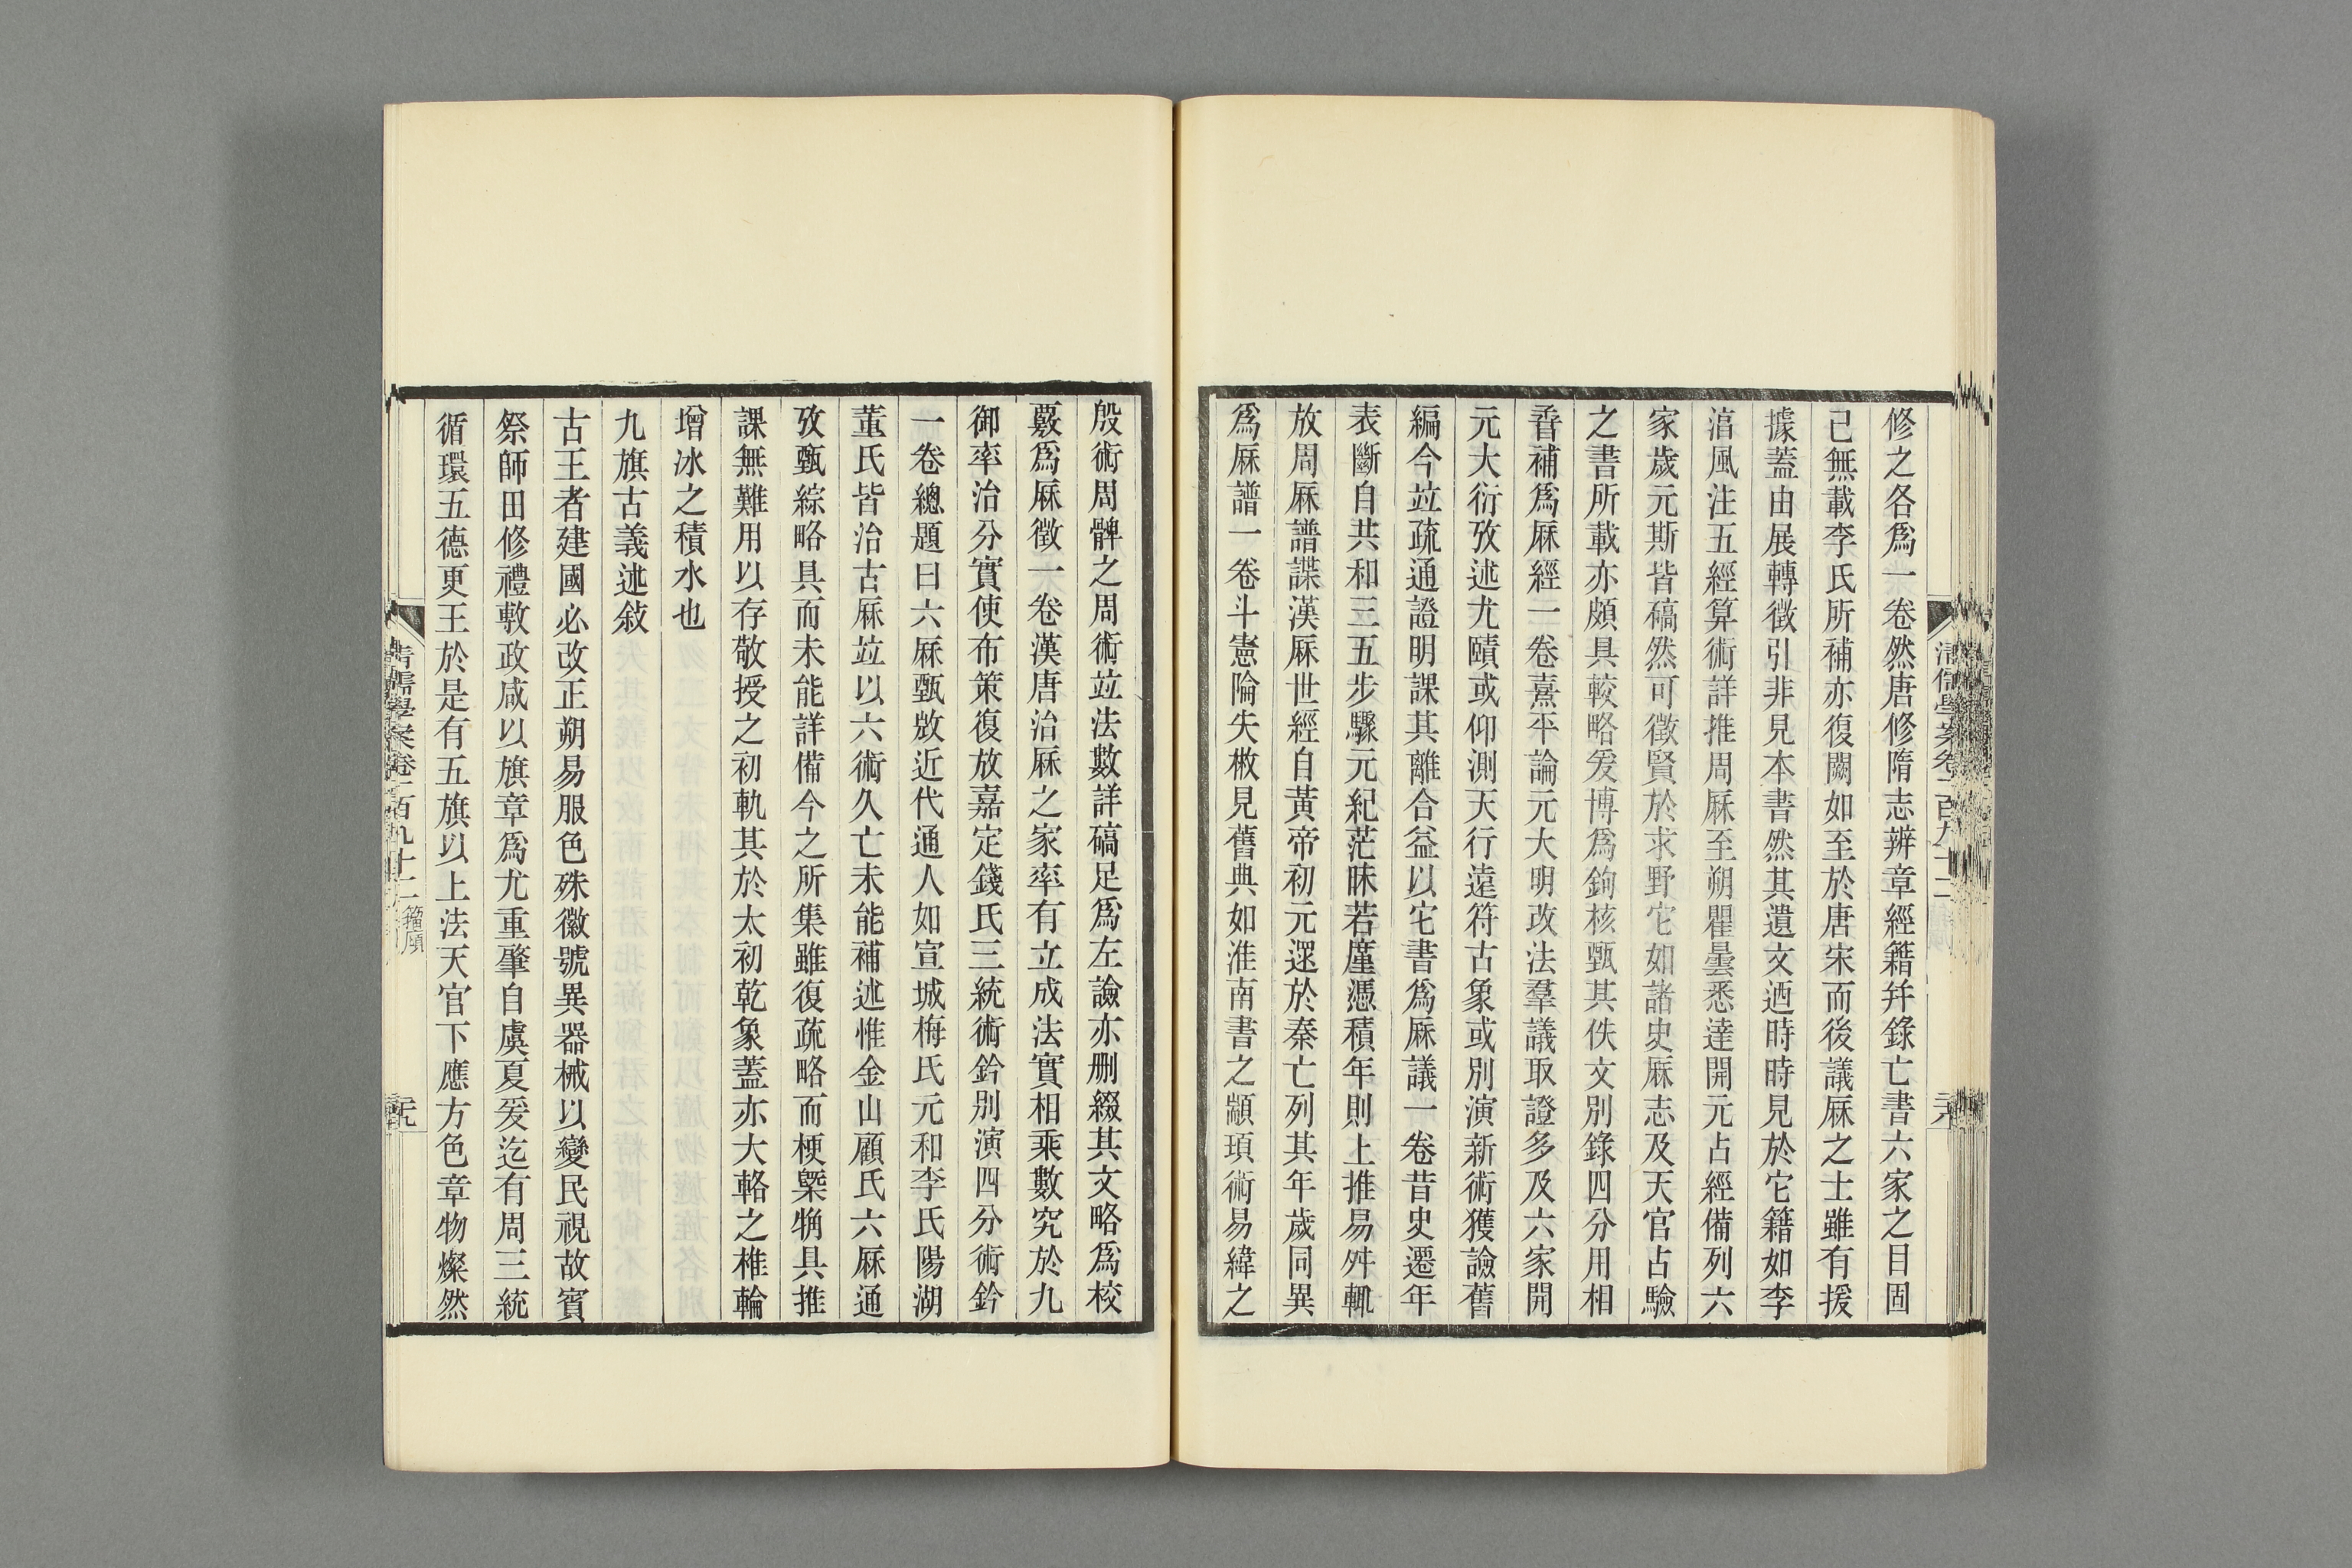 修之各爲一卷然唐修隋志辨章經籍幷錄亡書六家之目固
已無載李氏所補亦復闕如至於唐宋而後議厤之士雖有援
據蓋由展轉徵引非見本書然其遺文迺時時見於它籍如李
湻風注五經算術詳推周厤至朔瞿曇悉達開元占經備列六
家歲元斯皆碻然可徵賢於求野它如諸史厤志及天官占驗
之書所載亦頗具較略爰博爲鉤核甄其佚文別錄四分用相
晉補爲厤經一卷熹平論元大明改法羣議取證多及六家開
元大衍攷述尤賾或仰測天行遠符古象或別演新術獲譣舊
編今竝疏通證明課其離合益以它書爲厤議一卷昔史遷年
表斷自共和三五步驟元紀茫昧若廑憑積年則上推易舛輒
放周厤譜諜漢厤世經自黃帝初元還於秦亡列其年歲同異
爲厤譜一卷斗憲陯失㪚見舊典如淮南書之顓頊術易緯之
殷術周髀之周術竝法數詳碻足爲左譣亦刪綴其文略爲校
覈爲厤徵一卷漢唐治厤之家率有立成法實相乘數究於九
御率治分實使布策復放嘉定錢氏三統術鈐別演四分術鈐
一卷總題曰六厤甄㪚近代通人如宣城梅氏元和李氏陽湖
董氏皆治古厤竝以六術久亡未能補述惟金山顧氏六厤通
攷甄綜略具而未能詳備今之所集雖復疏略而梗槩粗具推
課無難用以存敬授之初軌其於太初乾象蓋亦大輅之椎輪
增冰之積水也
九旗古義述敍
古王者建國必改正朔易服色殊徽號異器械以變民視故賓
祭師田修禮敷政咸以旗章爲尤重肇自虞夏爰迄有周三統
循環五德更王於是有五旗以上法天官下應方色章物燦然
清儒學案卷一百九十二 籀廎